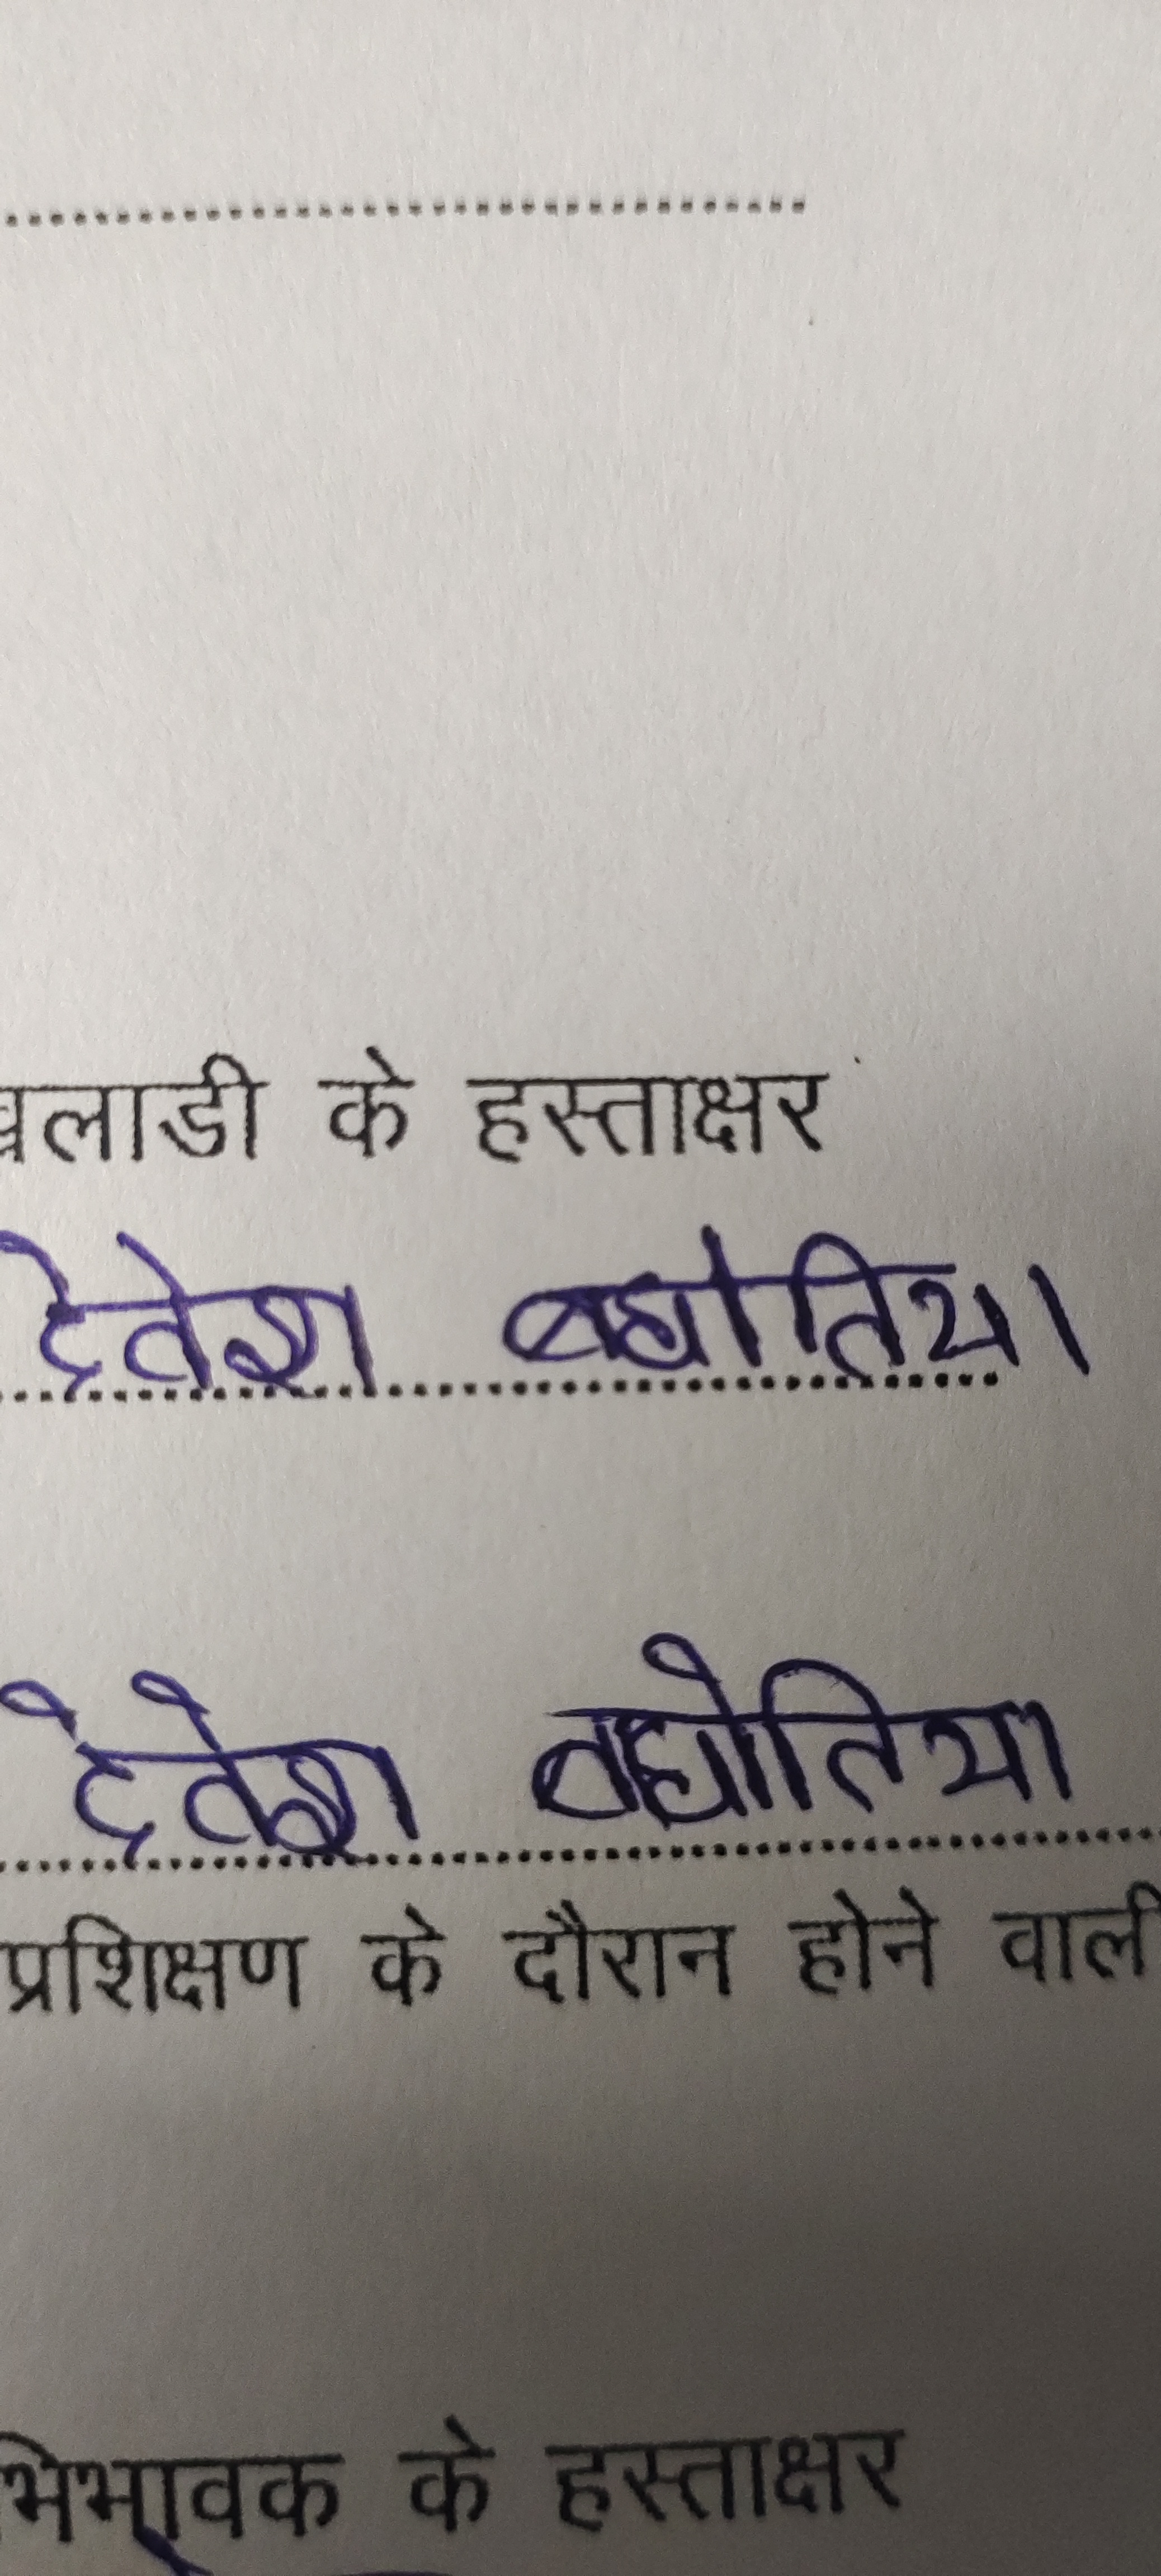 खिलाडी के हस्ताक्षर
देवेश बघोतिया
देवेश बघोतिया
प्रशिक्षण के दौरान होने वाली
अभिभावक के हस्ताक्षर